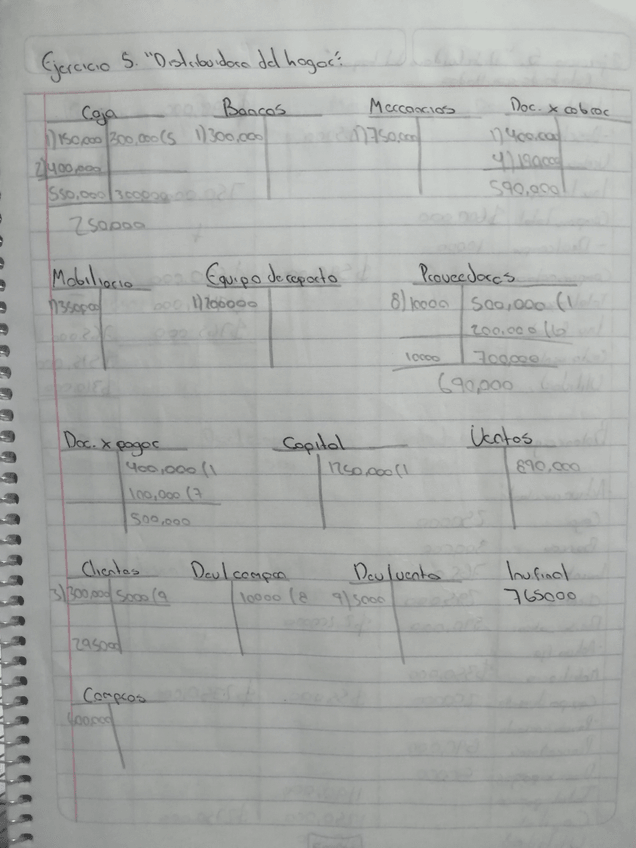 Ejercicio 5. "Distribuidora del hogar".
Caja Bancos Mercancias Doc. x cobrar
1) 150,000 300,000 (5 1) 300,000 1) 750,000 1) 400,000
2) 400,000 4) 190,000
550,000 300,000 590,000
250,000
Mobiliario Equipo de reparto Proveedores
1) 350,000 1) 200000 8) 10000 500,000 (1
200,000 (6
10000 700,000
690,000
Doc. x pagar Capital Ventas
400,000 (1 1250,000 (1 890,000
100,000 (7
500,000
Clientes Dev/compra Dev/venta Inv final
3) 300,000 5000 (9 10000 (8 9) 5000 765000
295000
Compras
600,000